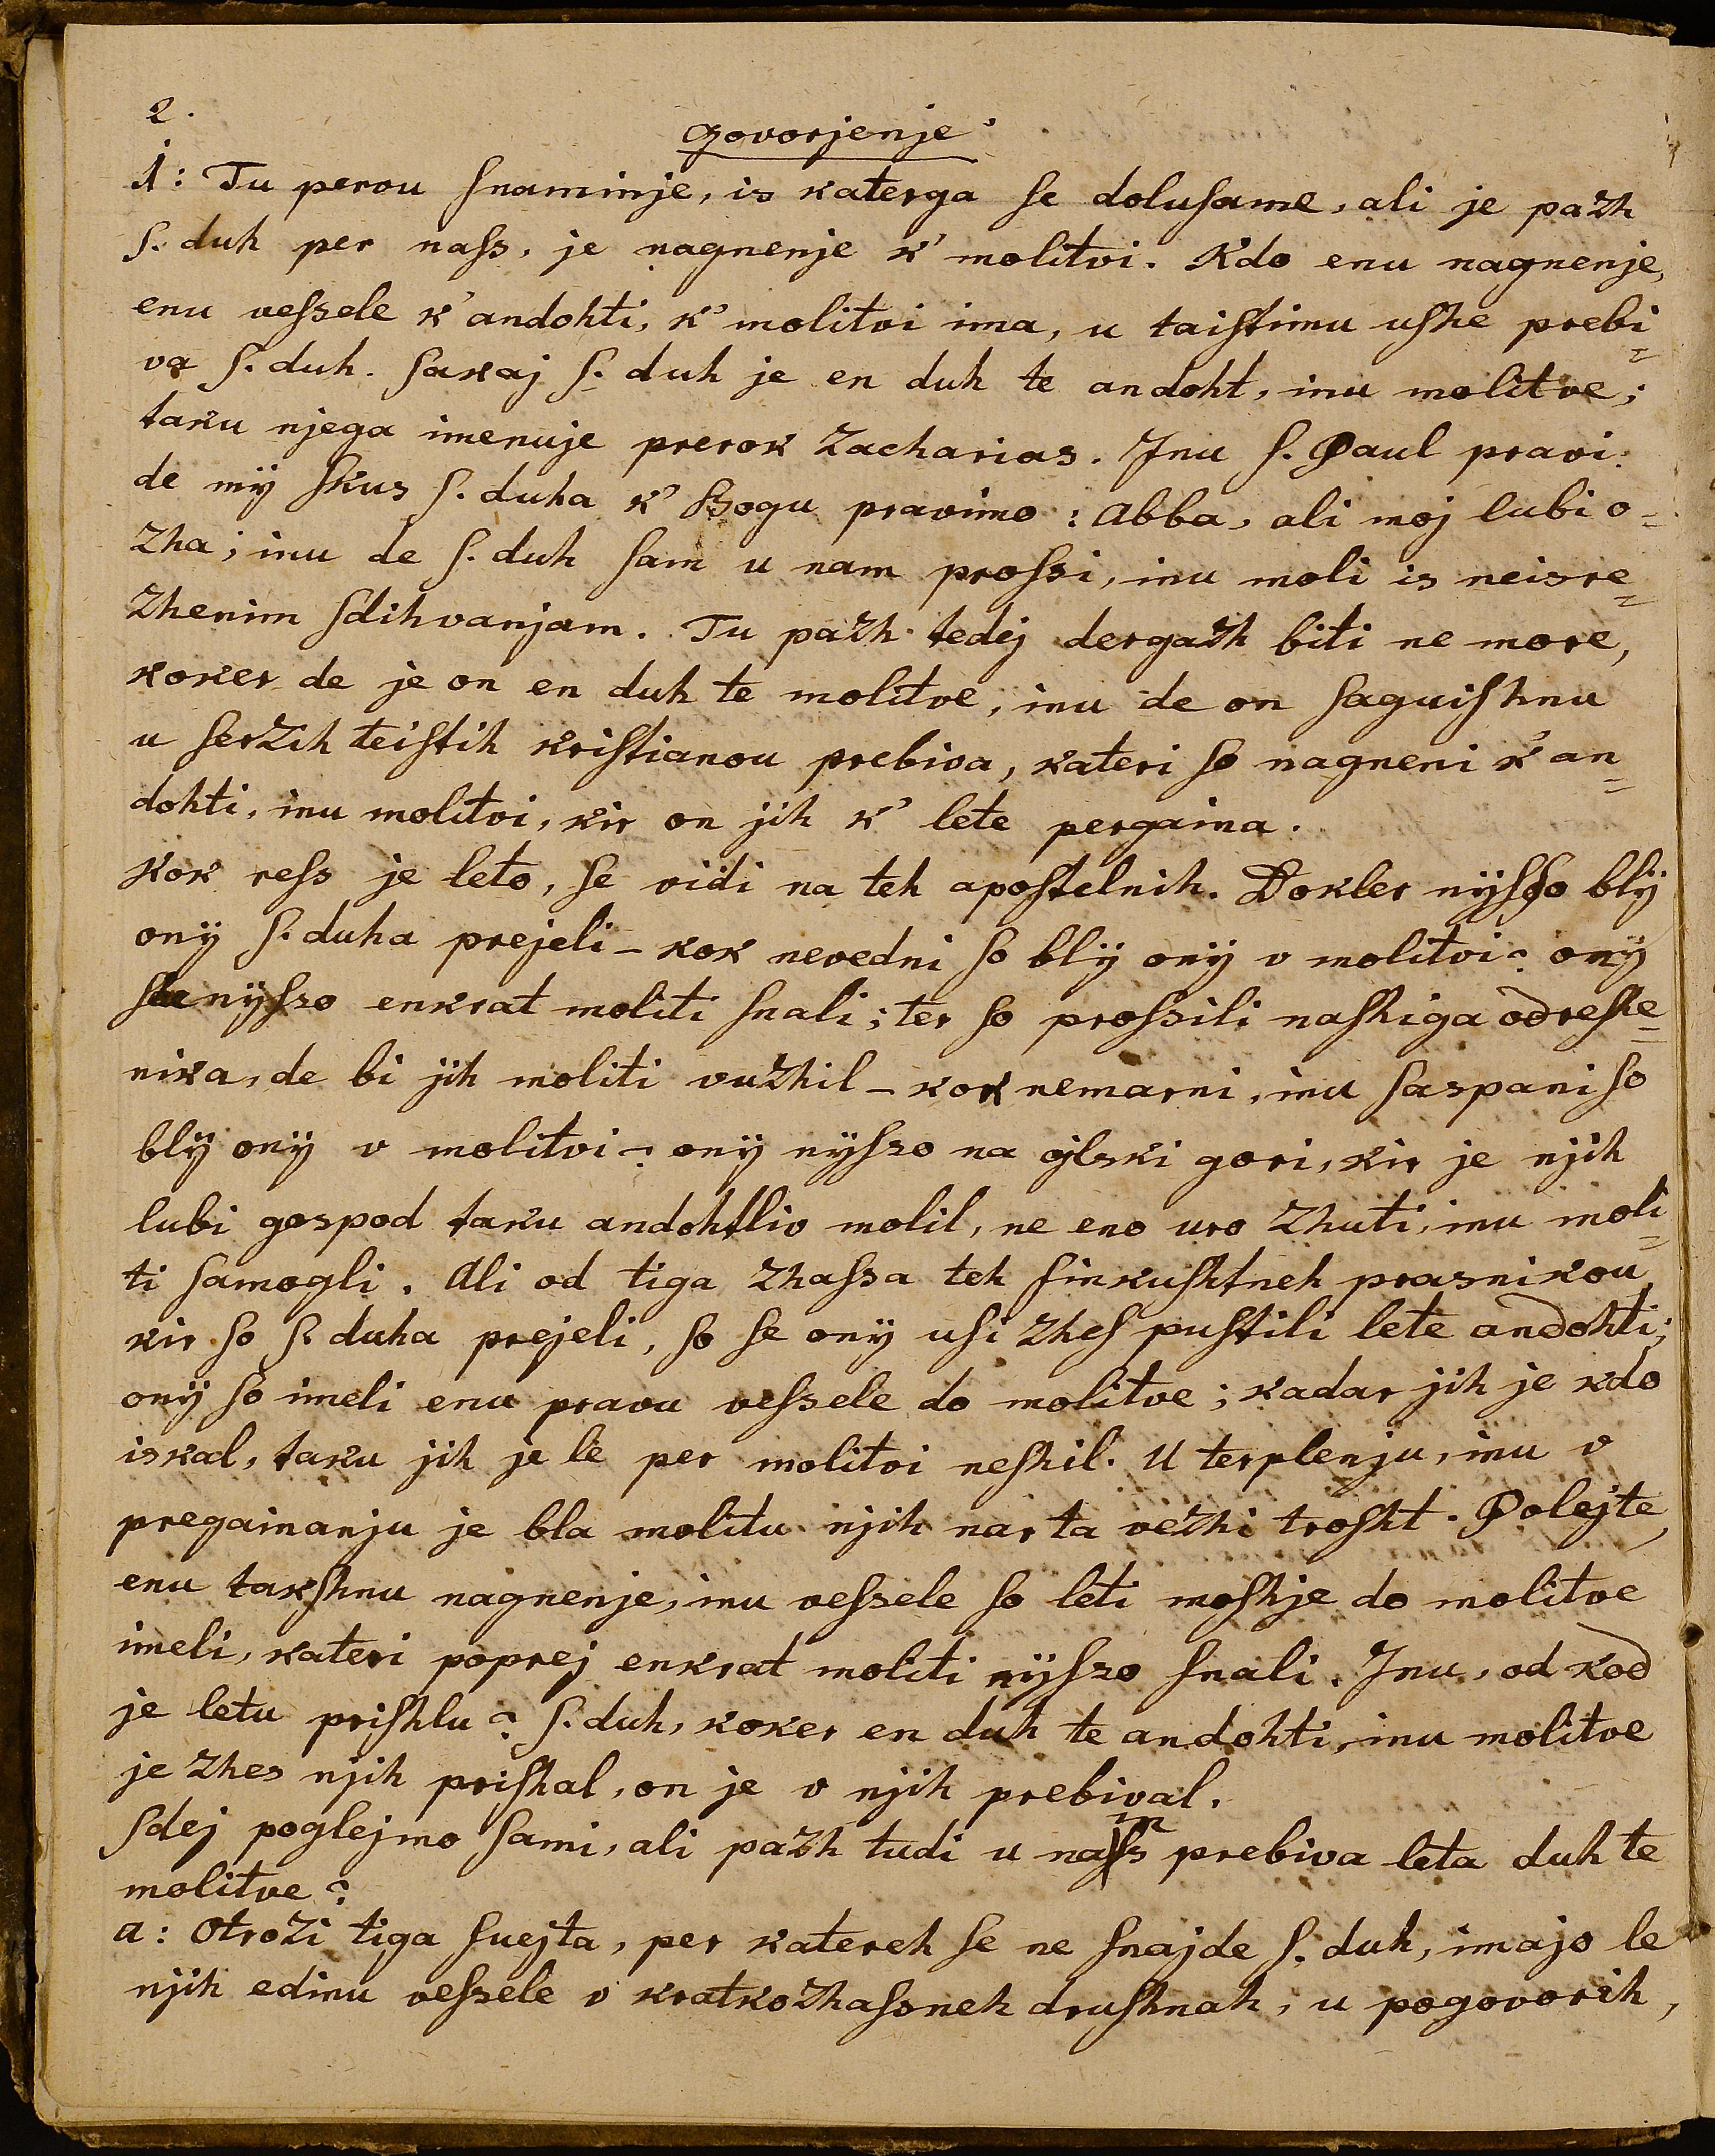 2.
govorjenje
1: Tu perou ſnaminje, is katerga ſe doluſame, ali je pazh
ſ. duh per naſs, je nagnenje k' molitvi. Kdo enu nagnenje,
enu veſsele k' andohti, k' molitvi ima, u taiſtimu uſhe prebi=
va ſ. duh. ſakaj ſ. duh je en duh te andoht, inu molitve;
taku njega imenuje prerok Zacharias. Inu ſ. Paul pravi:
de mÿ ſkus ſ. duha k' Bogu pravimo: Abba, ali moj lubi o=
zha; inu de ſ. duh ſam u nam proſsi, inu moli is neisre=
zhenim ſdihvanjam. Tu pazh tedej dergazh biti ne more,
koker de je on en duh te molitve, inu de on ſaguiſhnu
u ſerzih teiſtih kriſtianou prebiva, kateri ſo nagneni k' an=
dohti, inu molitvi, kir on jih k' lete pergaina.
Kok reſs je leto, ſe vidi na teh apoſtelnih. Dokler nÿſso blÿ
onÿ ſ. duha prejeli – kok nevedni ſo blÿ onÿ v molitvi? onÿ
nÿſso enkrat moliti ſnali; ter ſo proſsili naſhiga odreſhe=
nika, de bi jih moliti vuzhil – kok nemarni, inu ſaspani ſo
blÿ onÿ v molitvi? onÿ nÿſso na ojlski gori, kir je njih
lubi gospod taku andohtliv molil, ne eno uro zhuti, inu moli=
ti ſamogli. Ali od tiga zhaſsa teh finkuſhtneh prasnikou,
kir ſo ſ. duha prejeli, ſo ſe onÿ uſi zheſ puſtili lete andohti;
onÿ ſo imeli enu pravu veſsele do molitve; kadar jih je kdo
iskal, taku jih je le per molitvi neſhil. U terplenju, inu v
pregainanju je bla molitu njih nar ta vezhi troſht. Polejte,
enu takſhnu nagnenje, inu veſsele ſo leti moſhje do molitve
imeli, kateri poprej enkrat moliti nÿſso ſnali. Inu, od kod
je letu priſhlu? ſ. duh, koker en duh te andohti, inu molitve
je zhes njih priſhal, on je v njih prebival.
Sdej poglejmo ſami, ali pazh tudi u nam prebiva leta duh te
molitve?
a: Otrozi tiga ſuejta, per katereh ſe ne ſnajde ſ. duh, imajo le
njih edinu veſsele v kratkozhaſsneh druſhnah, u pogovorih,